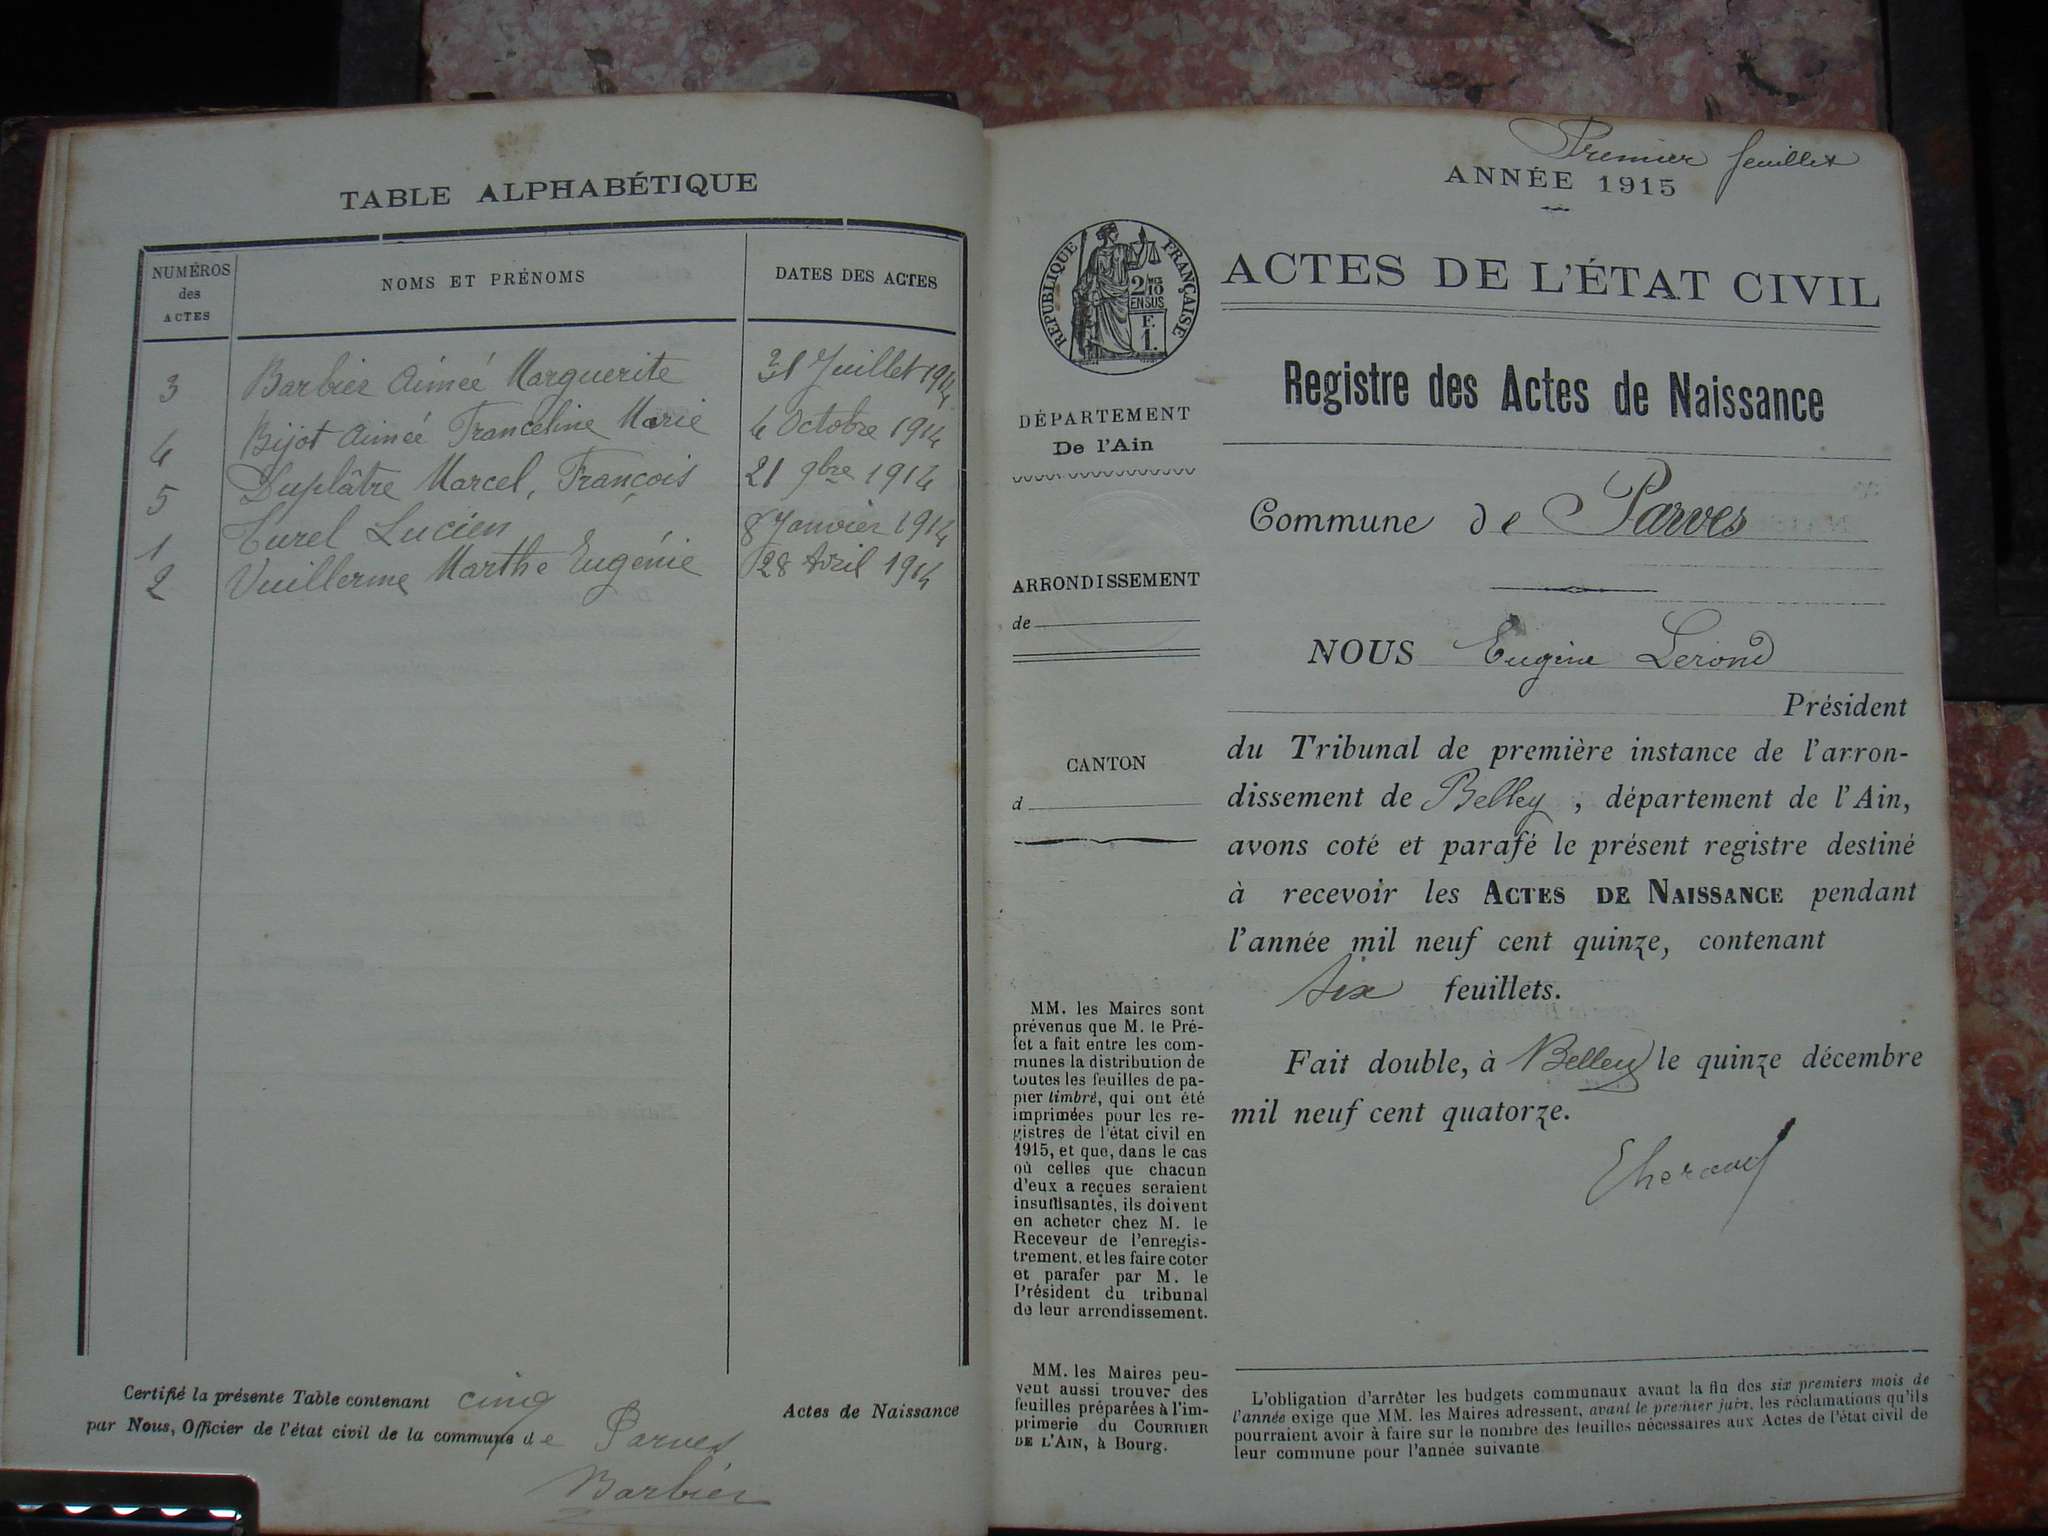 TABLE ALPHABÉTIQUE
NUMÉROS des ACTES
NOMS ET PRÉNOMS
DATES DES ACTES
3 Barbier Aimée Marguerite 31 Juillet 1914
4 Bijot Aimée Franceline Marie 4 Octobre 1914
5 Duplâtre Marcel, François 21 9bre 1914
1 Turel Lucien 8 Janvier 1914
2 Vuillerme Marthe Eugénie 28 Avril 1914
Certifié la présente Table contenant cinq Actes de Naissance
par Nous, Officier de l'état civil de la commune de Parves
Barbier
Premier feuillet
ANNÉE 1915
RÉPUBLIQUE FRANÇAISE
2/10 EN SUS
F. 1.
ACTES DE L'ÉTAT CIVIL
Registre des Actes de Naissance
DÉPARTEMENT
De l'Ain
Commune de Parves
ARRONDISSEMENT
de
NOUS Eugène Lerond
Président
du Tribunal de première instance de l'arron-
CANTON
d
dissement de Belley, département de l'Ain,
avons coté et parafé le présent registre destiné
à recevoir les ACTES DE NAISSANCE pendant
l'année mil neuf cent quinze, contenant
six feuillets.
Fait double, à Belley le quinze décembre
mil neuf cent quatorze.
MM. les Maires sont
prévenus que M. le Pré-
fet a fait entre les com-
munes la distribution de
toutes les feuilles de pa-
pier timbré, qui ont été
imprimées pour les re-
gistres de l'état civil en
1915, et que, dans le cas
où celles que chacun
d'eux a reçues seraient
insuffisantes, ils doivent
en acheter chez M. le
Receveur de l'enregis-
trement, et les faire coter
et parafer par M. le
Président du tribunal
de leur arrondissement.
MM. les Maires peu-
vent aussi trouver des
feuilles préparées à l'im-
primerie du COURRIER
DE L'AIN, à Bourg.
L'obligation d'arrêter les budgets communaux avant la fin des six premiers mois de
l'année exige que MM. les Maires adressent, avant le premier juin, les réclamations qu'ils
pourraient avoir à faire sur le nombre des feuilles nécessaires aux Actes de l'état civil de
leur commune pour l'année suivante